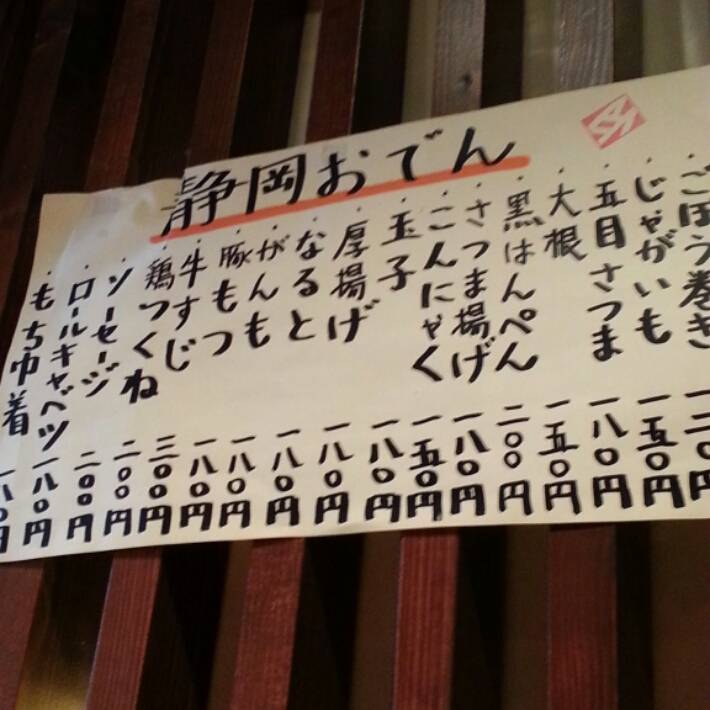 静岡おでん
ごぼう巻き
・じゃがいも 一五〇円
・五目さつま 一八〇円
・大根 一五〇円
・黒はんぺん 二〇〇円
・さつま揚げ 一八〇円
・こんにゃく 一五〇円
・玉子 一八〇円
・厚揚げ 一八〇円
・なると 一八〇円
・がんも 一八〇円
・豚もつ 一八〇円
・牛すじ 三〇〇円
・鶏つくね 二〇〇円
・ソーセージ 二〇〇円
・ロールキャベツ 一八〇円
・もち巾着 一八〇円